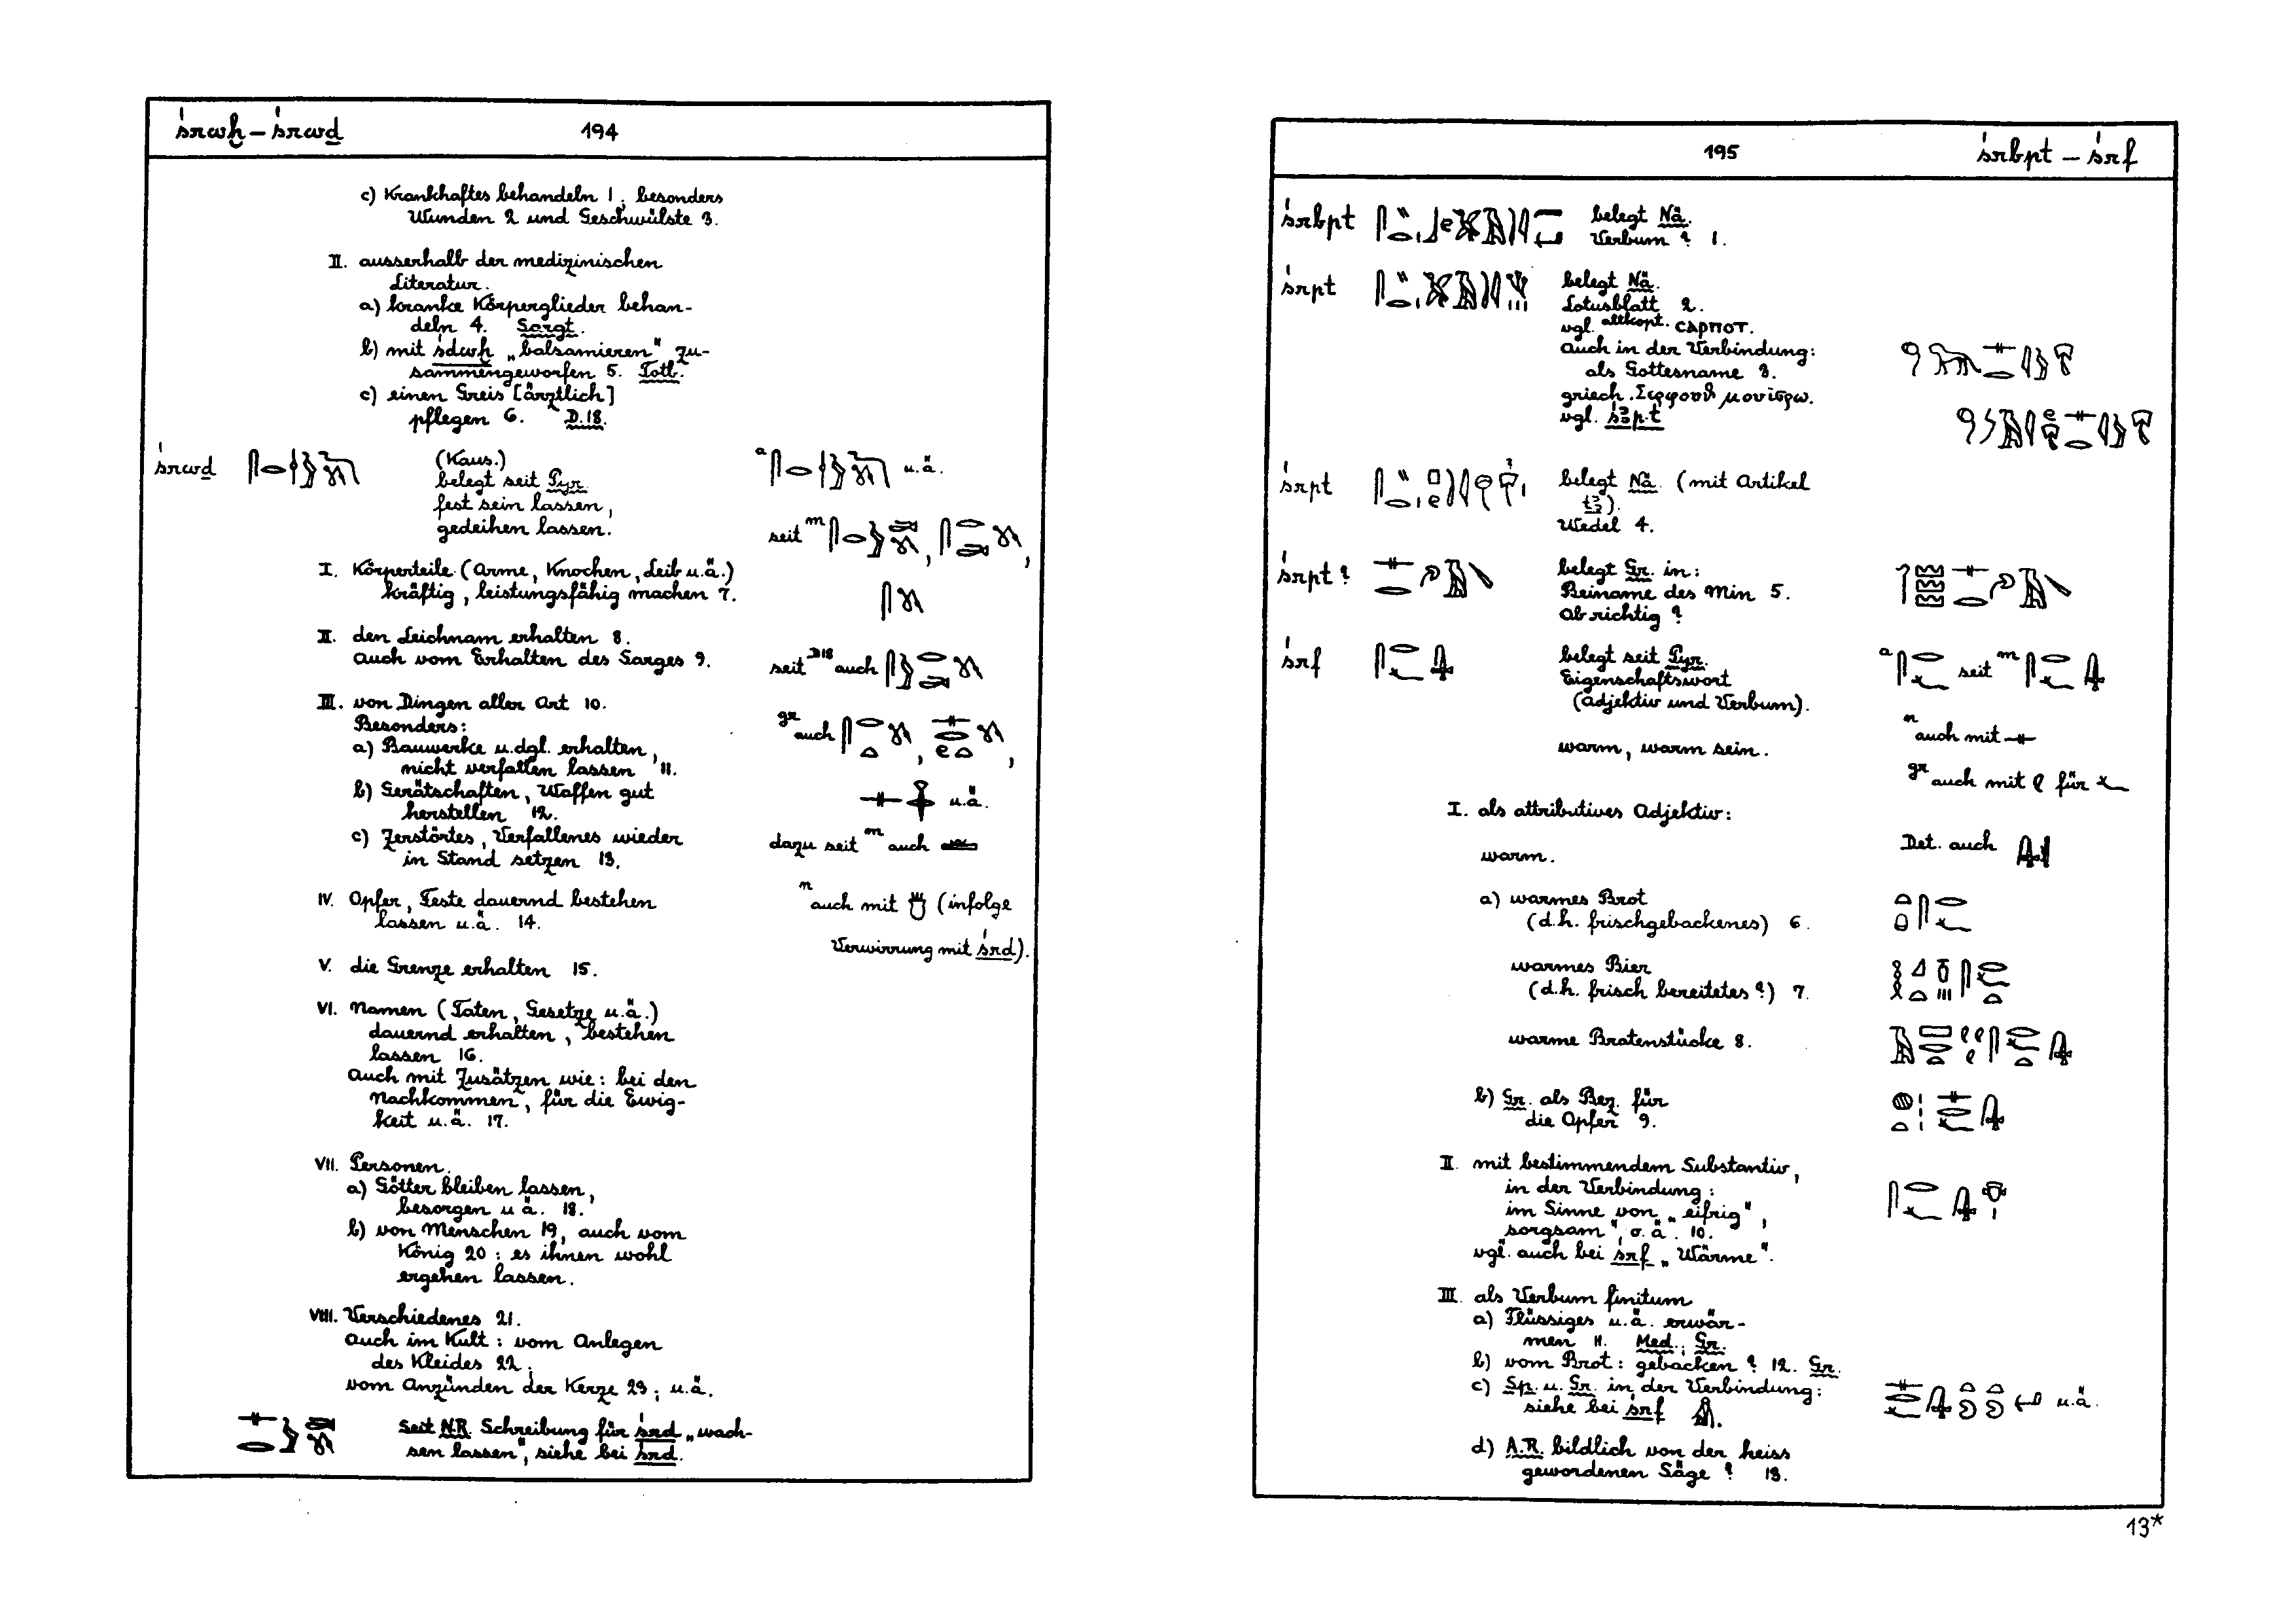 śrwḫ – śrwḏ 194
c) Krankhaftes behandeln 1; besonders
Wunden 2 und Geschwülste 3.
II. ausserhalb der medizinischen
Literatur.
a) kranke Körperglieder behan-
deln 4. Sargt.
b) mit śdwḫ „balsamieren" zu-
sammengeworfen 5. Totb.
c) einen Greis [ärztlich]
pflegen 6. D.18.
śrwḏ (Kaus.)
belegt seit Pyr.
fest sein lassen,
gedeihen lassen.
I. Körperteile (Arme, Knochen, Leib u.ä.)
kräftig, leistungsfähig machen 7.
II. den Leichnam erhalten 8.
auch vom Erhalten des Sarges 9.
III. von Dingen aller Art 10.
Besonders:
a) Bauwerke u.dgl. erhalten,
nicht verfallen lassen 11.
b) Gerätschaften, Waffen gut
herstellen 12.
c) Zerstörtes, Verfallenes wieder
in Stand setzen 13.
IV. Opfer, Feste dauernd bestehen
lassen u.ä. 14.
V. die Grenze erhalten 15.
VI. Namen (Taten, Gesetze u.ä.)
dauernd erhalten, bestehen
lassen 16.
auch mit Zusätzen wie: bei den
Nachkommen, für die Ewig-
keit u.ä. 17.
VII. Personen.
a) Götter bleiben lassen,
besorgen u.ä. 18.
b) von Menschen 19, auch vom
König 20: es ihnen wohl
ergehen lassen.
VIII. Verschiedenes 21.
auch im Kult: vom Anlegen
des Kleides 22;
vom Anzünden der Kerze 23; u.ä.
Seit N.R. Schreibung für śrd „wach-
sen lassen", siehe bei śrd.
a u.ä.
seit m , ,
seit D18 auch
gr auch , ,
u.ä.
dazu seit m auch
n auch mit (infolge
Verwirrung mit śrd).
195 śrbpt – śrf
śrbpt belegt Nä.
Verbum? 1.
śrpt belegt Nä.
Lotusblatt 2.
vgl. altkopt. ⲥⲁⲣⲡⲟⲧ.
auch in der Verbindung:
als Gottesname 3.
griech.
vgl. śꜣp.t
śrpt belegt Nä. (mit Artikel
tꜣ).
Wedel 4.
śrpt? belegt Gr. in:
Beiname des Min 5.
Ob richtig?
śrf belegt seit Pyr.
Eigenschaftswort
(Adjektiv und Verbum).
warm, warm sein.
I. als attributives Adjektiv:
warm.
a) warmes Brot
(d.h. frischgebackenes) 6.
warmes Bier
(d.h. frisch bereitetes?) 7.
warme Bratenstücke 8.
b) Gr. als Bez. für
die Opfer 9.
II. mit bestimmendem Substantiv,
in der Verbindung:
im Sinne von „eifrig",
sorgsam", o.ä. 10.
vgl. auch bei śrf „Wärme".
III. als Verbum finitum
a) Flüssiges u.ä. erwär-
men 11. Med.; Gr.
b) vom Brot: gebacken? 12. Gr.
c) Sp. u. Gr. in der Verbindung:
siehe bei śrf .
d) A.R. bildlich von der heiss
gewordenen Säge? 13.
a seit m
n auch mit
gr auch mit für
Det. auch
u.ä.
13*